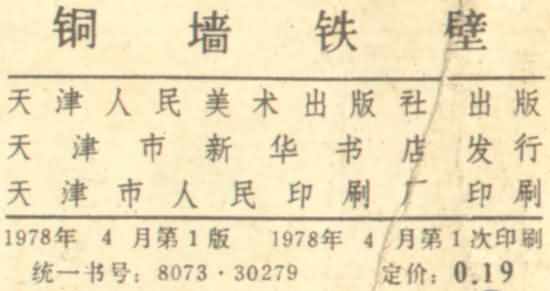 铜墙铁壁
天津人民美术出版社出版
天津市新华书店发行
天津市人民印刷厂印刷
1978年 4 月第 1 版 1978年 4 月第 1 次印刷
统一书号：8073·30279 定价：0.19